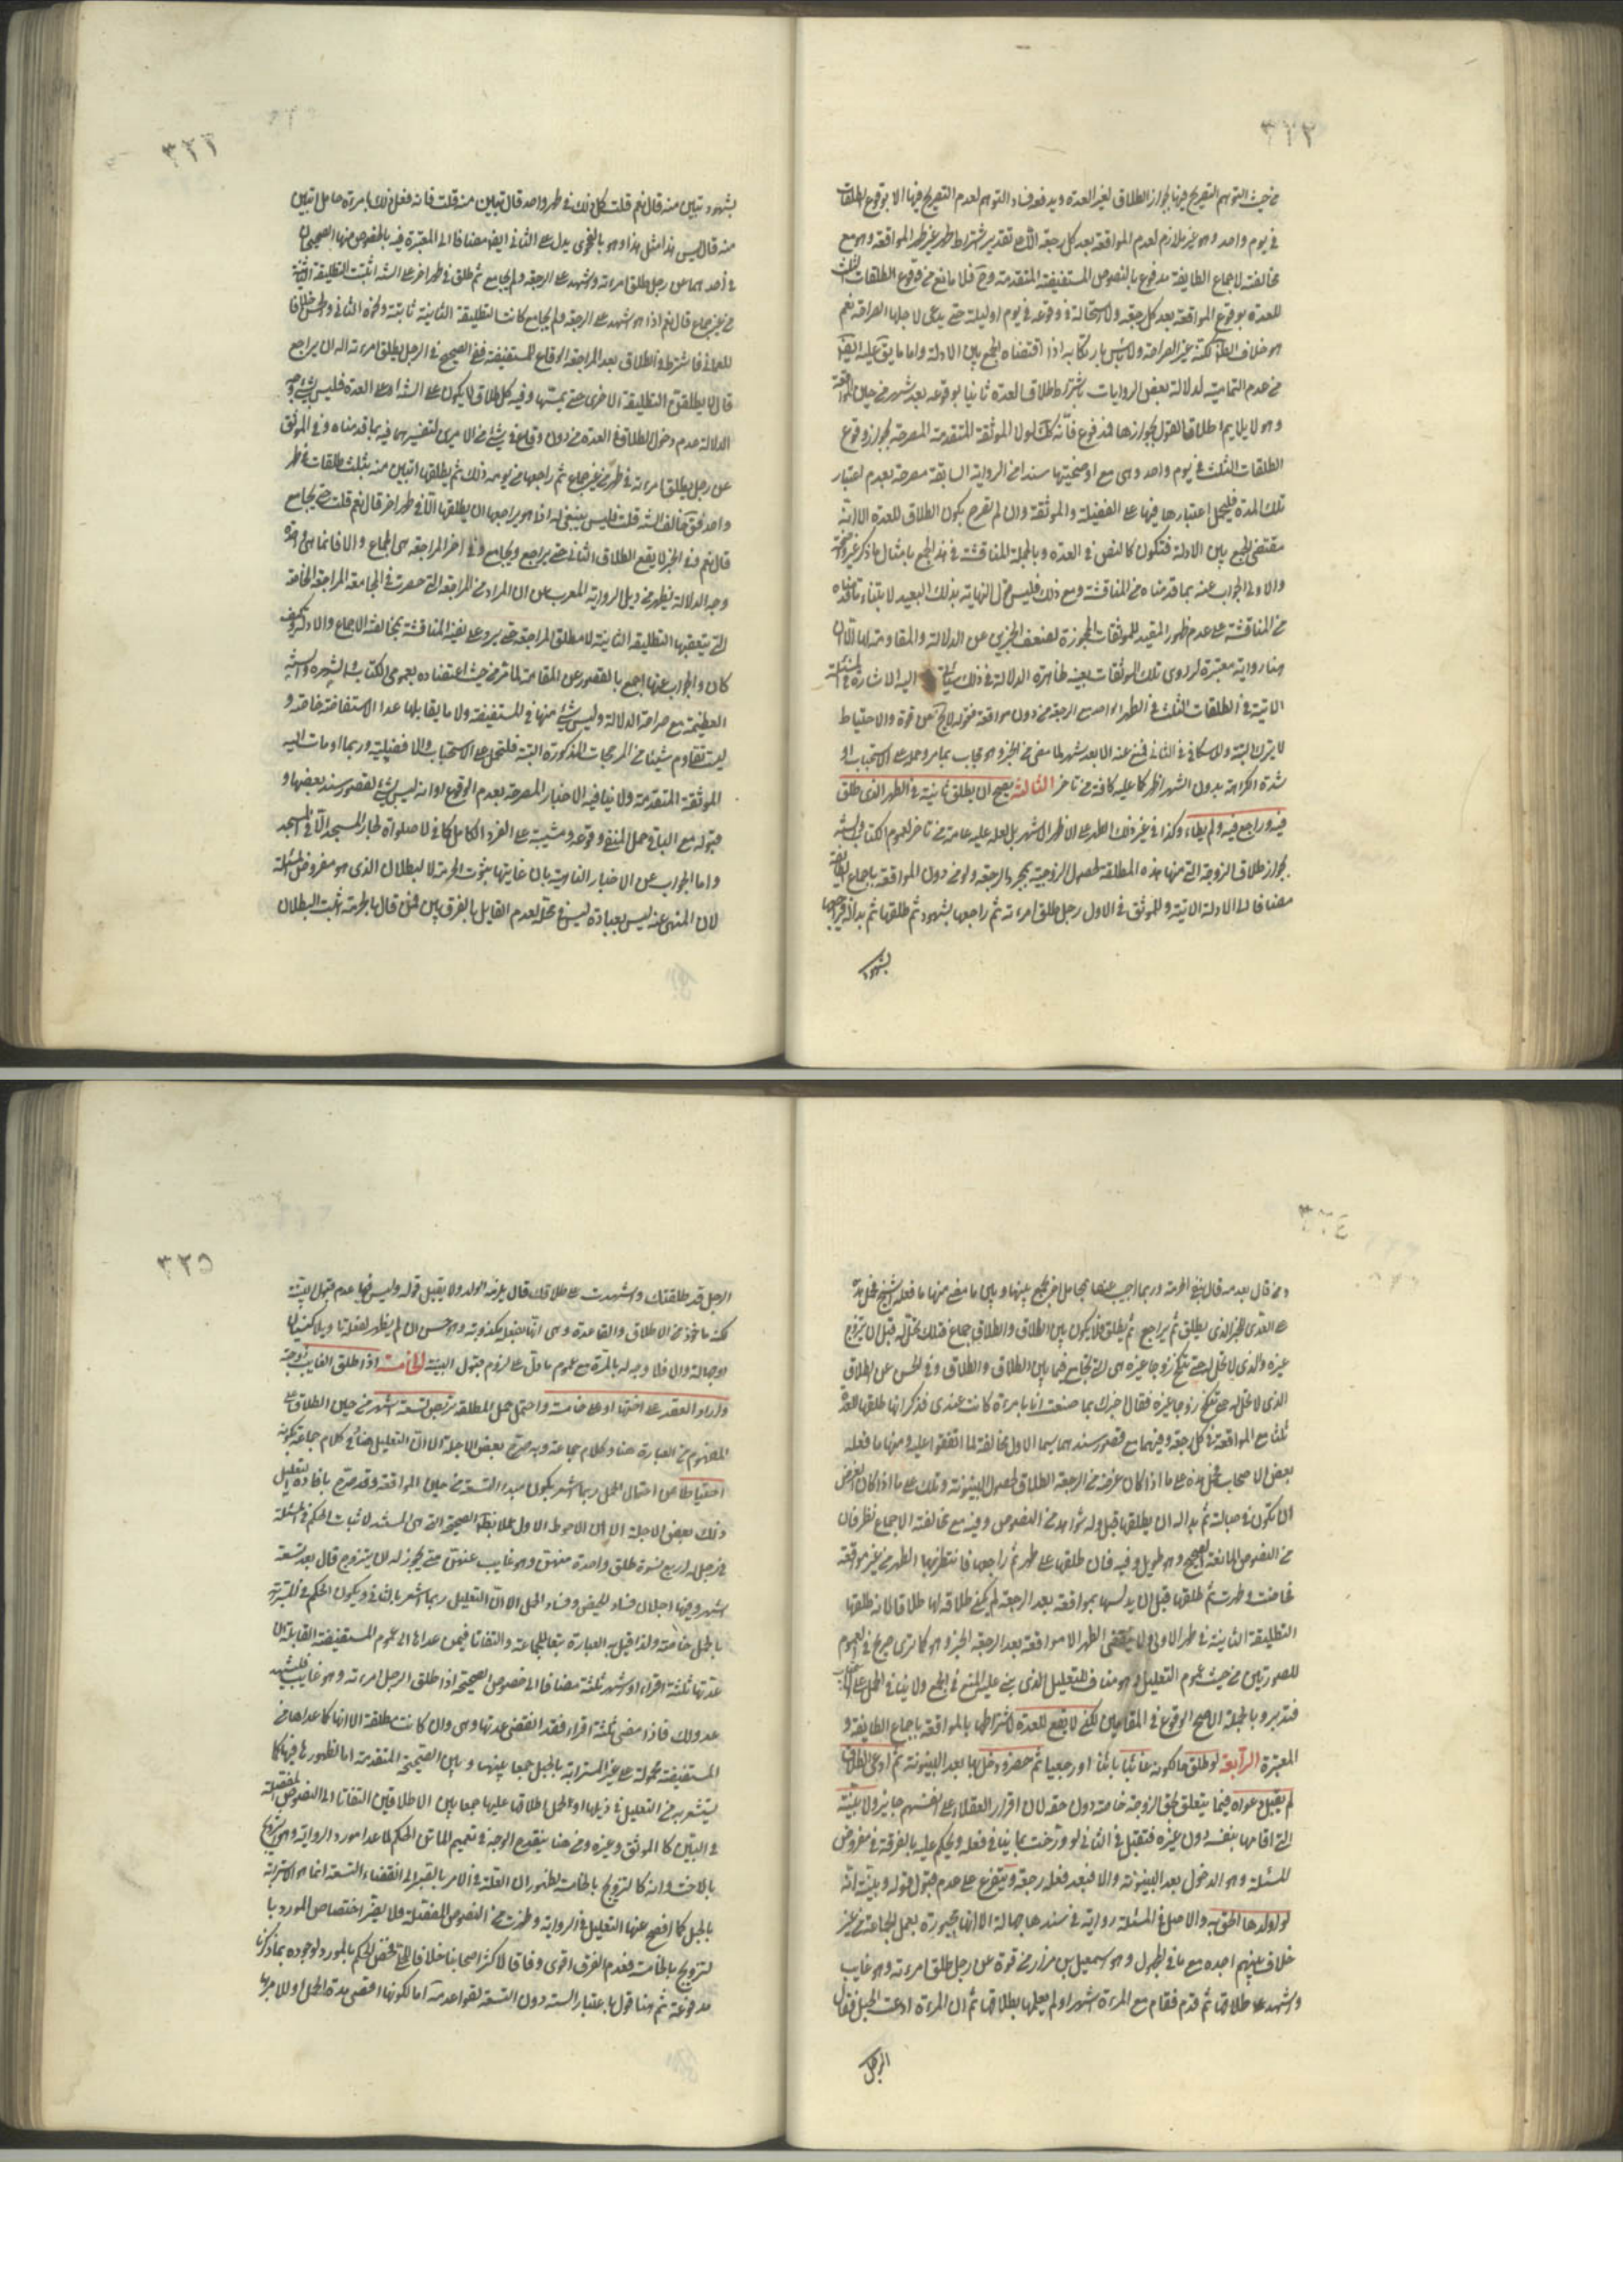 ٣٢٢
من حيث التوهم التصريح فيها بجواز الطلاق لغير العدة ويدفعه فساد التوهم لعدم التصريح فيها الا بوقوع الطلقات
في يوم واحد وهو غير ملازم لعدم المواقعة بعد كل رجعة الا على تقدير اشتراط طهر غير طهر المواقعة وهو مع
مخالفته لاجماع الطايفة مدفوع بالنصوص المستفيضة المتقدمة وح فلا مانع من وقوع الطلقات الثلث
للعدة بوقوع المواقعة بعد كل رجعة ولا استحالة في وقوعه في يوم او ليلة حتى يدعى لاجلها الصراحة نعم
هو خلاف الظ لكنه غير الصراحة ولا باس بارتكابه اذا اقتضاه الجمع بين الادلة واما ما يق عليه ايض
من عدم التمامية لدلالة بعض الروايات باشتراط طلاق العدة ثانيا بوقوعه بعد شهر من حين المواقعة
وهو لا يلايم اطلاق القول بجوازها فمدفوع فانه كك لولا الموثقة المتقدمة المصرحة بجواز وقوع
الطلقات الثلث في يوم واحد وهي مع اوضحيتها سندا من الرواية السابقة مصرحة بعدم اعتبار
تلك المدة فليحمل اعتبارها فيها على الفضيلة والموثقة وان لم تصرح بكون الطلاق للعدة الا انه
مقتضى الجمع بين الادلة فتكون كالنص في العدة وبالجملة المناقشة في هذا الجمع بامثال ما ذكر غير واضحة
والاولى الجواب عنه بما قدمناه من المناقشة ومع ذلك فليس حمل النهاية بذلك البعيد لابتناء ما قدمناه
من المناقشة على عدم ظهور المقيد للموثقات المجوزة لضعف الخبرين عن الدلالة والمقاومة لها الا ان
هنا رواية معتبرة لراوي تلك الموثقات بعينه ظاهرة الدلالة في ذلك سيأتي اليه الاشارة في المسئلة
الاتية في الطلقات الثلث في الطهر الواحد مع الرجعة من دون مواقعة فقوله لا يخ عن قوة والاحتياط
لا يترك البتة وللاسكافي في الثاني فمنع عنه الا بعد شهر لما مضى من الخبر وهو مجاب بما مر وحمله على الاستحباب او
شدة الكراهة بدون الشهر اظهر كما عليه كافة من تاخر الثالثة يصح ان يطلق ثانية في الطهر الذي طلق
فيه وراجع فيه ولم يطاء وكذا في غير ذلك الطهر على الاظهر الاشهر بل لعله عليه عامة من تاخر لعموم الكتاب والسنة
بجواز طلاق الزوجة التي منها هذه المطلقة لحصول الزوجية بمجرد الرجعة ولو من دون المواقعة باجماع الطايفة
مضافا الى الادلة الاتية وللموثق في الاول رجل طلق امرءته ثم راجعها بشهود ثم طلقها ثم بدا له فراجعها
بشهود
٣٢٣
بشهود تبين منه قال نعم قلت كل ذلك في طهر واحد قال تبين منه قلت فانه فعل ذلك بامرءة حامل اتبين
منه قال ليس هذا مثل هذا وهو بالفحوى يدل على الثاني ايض مضافا الى المعتبرة فيه بالخصوص منها الصحيحان
في احدهما عن رجل طلق امرءته واشهد على الرجعة ولم يجامع ثم طلق في طهر اخر على السنة اثبتت التطليقة الثانية
من غير جماع قال نعم اذا هو اشهد على الرجعة ولم يجامع كانت التطليقة الثانية ثابتة ونحوه الثاني والحسن خلافا
للعماني فاشترط في الطلاق بعد المراجعة الوقاع للمستفيضة ففي الصحيح في الرجل يطلق امرءته اله ان يراجع
قال لا يطلقن التطليقة الاخرى حتى يمسها وفيه كل طلاق لا يكون على السنة او على العدة فليس بشيء وجه
الدلالة عدم دخول الطلاق في العدة من دون وقاع في شيء من الامرين لتفسيرهما فيه بما قدمناه وفي الموثق
عن رجل يطلق امرءته في طهر من غير جماع ثم راجعها من يومه ذلك ثم يطلقها اتبين منه بثلث طلقات في طهر
واحد فق خالف السنة قلت فليس ينبغي له اذا هو يراجعها ان يطلقها الا في طهر اخر قال نعم قلت حتى يجامع
قال نعم وفي الخبر لا يقع الطلاق الثاني حتى يراجع ويجامع وفي اخر المراجعة هي الجماع والا فانما هي واحدة
وجه الدلالة يظهر من ذيل الرواية المعرب عن ان المراد من المراجعة التي حصرت في المجامعة المراجعة الخاصة
التي يتعقبها التطليقة الثانية لا مطلق المراجعة حتى يرد على نفيه المناقشة بمخالفة الاجماع والادلة وكيف
كان والجواب عنها اجمع بالقصور عن المقاومة لما مر من حيث اعتضاده بعموم الكتاب والشهرة والسنة
العظيمة مع صراحة الدلالة وليس شيء منها في المستفيضة ولا ما يقابلها عدا الاستفاضة خاصة و
ليست تقاوم شيئا من المرجحات المذكورة البتة فلتحمل على الاستحباب والافضيلية وربما اومات اليه
الموثقة المتقدمة ولا ينافيه الاخبار المصرحة بعدم الوقوع او انه ليس بشيء لقصور سند بعضها و
قبوله مع الباقي حمل المنفي وقوعه وشيئيته على الفرد الكامل كما في لا صلوة لجار المسجد الا في المسجد
واما الجواب عن الاخبار الناهية بان غايتها ثبوت الحرمة لا البطلان الذي هو مفروض المسئلة
لان المنهي عنه ليس بعبادة ليس في محله لعدم القايل بالفرق بين فمن قال بالحرمة اثبت البطلان
٣٢٤
ومن قال بعدمه قال بنفي الحرمة وربما اجيب عنها بمحامل اخر تجمع بينها وبين ما مضى منها ما فعله الشيخ فحمل هذه
على العدى للخبر الذي يطلق ثم يراجع ثم يطلق فلا يكون بين الطلاق والطلاق جماع فتلك تحل له قبل ان تزوج
غيره والذي لا تحل له حتى تنكح زوجا غيره هي التي تجامع فيما بين الطلاق والطلاق وفي الحسن عن الطلاق
الذي لا تحل له حتى تنكح زوجا غيره فقال اخبرك بما صنعت انا بامرءة كانت عندي فذكر انها طلقها للعدة
ثلثا مع المواقعة في كل رجعة وفيهما مع قصور سندهما سيما الاول مخالفة لما اتفقوا عليه ومنها ما فعله
بعض الاصحاب فحمل هذه على ما اذا كان غرضه من الرجعة الطلاق لحصول البينونة وتلك على ما اذا كان الغرض
ان تكون في حباله ثم بدا له ان يطلقها قبل وله شواهد من النصوص وفيه مع مخالفته الاجماع نظر فان
من النصوص المانعة الصحيح وهو طويل وفيه فان طلقها على طهر ثم راجعها فانتظر بها الطهر من غير مواقعة
فحاضت وطهرت ثم طلقها قبل ان يدنسها بمواقعة بعد الرجعة لم يكن طلاقه لها طلاقا لانه طلقها
التطليقة الثانية في طهر الاولى ولا ينقضي الطهر الا مواقعة بعد الرجعة الخبر وهو كما ترى صريح في العموم
للصورتين من حيث عموم التعليل وهو مناف للتعليل الذي بنى عليه المنع في الجمع ولا ينافي الحمل على
فتدبر وبالجملة الاصح الوقوع في المقامين لكن لا يقع للعدة لاشتراطها بالمواقعة باجماع الطايفة و
المعتبرة الرابعة لو طلق ما لكونه غائبا بائنا او رجعيا ثم حضر ودخل بها بعد البينونة ثم ادعى الطلاق
لم يقبل دعواه فيما يتعلق بحق الزوجة خاصة دون حقه لان اقرار العقلاء على انفسهم جايز ولا بينته
التي اقامها بنفسه دون غيره فتقبل في الثاني لو ورخت بما ينافي فعله ويحكم عليه بالفرقة في مفروض
المسئلة وهو الدخول بعد البينونة والا فبعد فعله رجعة ويتفرع على عدم قبول قوله وبينته انه
لو اولدها الحق به والاصل في المسئلة رواية في سندها جهالة الا انها مجبورة بعمل الجماعة من غير
خلاف بينهم اجده مع ما في المجهول وهو اسمعيل بن مرار من قوة عن رجل طلق امرءته وهو غايب
واشهد على طلاقها ثم قدم فقام مع المرءة اشهرا ولم يعلمها بطلاقها ثم ان المرءة ادعت الحبل فقال
الرجل
٣٢٥
الرجل قد طلقتك واشهدت على طلاقك قال يلزمه الولد ولا يقبل قوله وليس فيها عدم قبول البينة
لكنه ماخوذ من الاطلاق والقاعدة وهي انه بفعله مكذوبة وهو حسن ان لم يظهر لفعله تاويلا كنسيان
او جهالة والا فلا وجه له بالمرة مع عموم ما دل على لزوم قبول البينة الخامسة اذا طلق الغايب زوجته
واراد العقد على اختها او على خامسة واحتمل حمل المطلقة تربص تسعة اشهر من حين الطلاق على
المفهوم من العبارة هنا وكلام جماعة وبه صرح بعض الاجلة الا ان التعليل هنا في كلام جماعة بكونه
احتياطا من احتمال الحمل ربما اشعر بكون مبدا التسعة من حين المواقعة وقد صرح بافادة التعليل
ذلك بعض الاجلة الا ان الاحوط الاول عملا بظ الصحيحة التي هي المستند لاثبات الحكم في المسئلة
في رجل له اربع نسوة طلق واحدة منهن وهو غايب عنهن متى يجوز له ان يتزوج قال بعد تسعة
اشهر وفيها اجلان فساد الحيض وفساد الحمل الا ان التعليل ربما اشعر بالثاني ويكون الحكم في المسترابة
بالحمل خاصة ولذا قيل به العبارة تبعا للجماعة والتفاتا فيمن عداها الى عموم المستفيضة القايلة ان
عدتها ثلثة اقراء او اشهر ثلثة مضافا الى خصوص الصحيحة اذا طلق الرجل امرءته وهو غايب فليشهد
عدولا فاذا مضى ثلثة اقراء فقد انقضى عدتها وهي وان كانت مطلقة الا انها كما عداها من
المستفيضة محمولة على غير المسترابة بالحبل جمعا بينها وبين الصحيحة المتقدمة اما لظهورها فيها كما
يستشعر به من التعليل في ذيلها او لحمل اطلاقها عليها جمعا بين الاطلاقين التفاتا الى النصوص المفصلة
في البين كالموثق وغيره ومن هنا ينقدح الوجه في تعميم الماتن الحكم لما عدا مورد الرواية وهو التزويج
بالاخت وانه كالتزويج بالخامسة لظهور ان العلة في الامر بالصبر الى انقضاء التسعة انما هو الاسترابة
بالحبل كما افصح عنها التعليل في الرواية وظهرت من النصوص المفصلة فلا يضر اختصاص المورد با
لتزويج بالخامسة فعدم الفرق اقوى وفاقا لاكثر اصحابنا خلافا للحلي فخص الحكم بالمورد لوجوه بما ذكرنا
مدفوعة ثم هنا قول باعتبار السنة دون التسعة لقواعد مة اما لكونها اقصى مدة الحمل او للامر بها